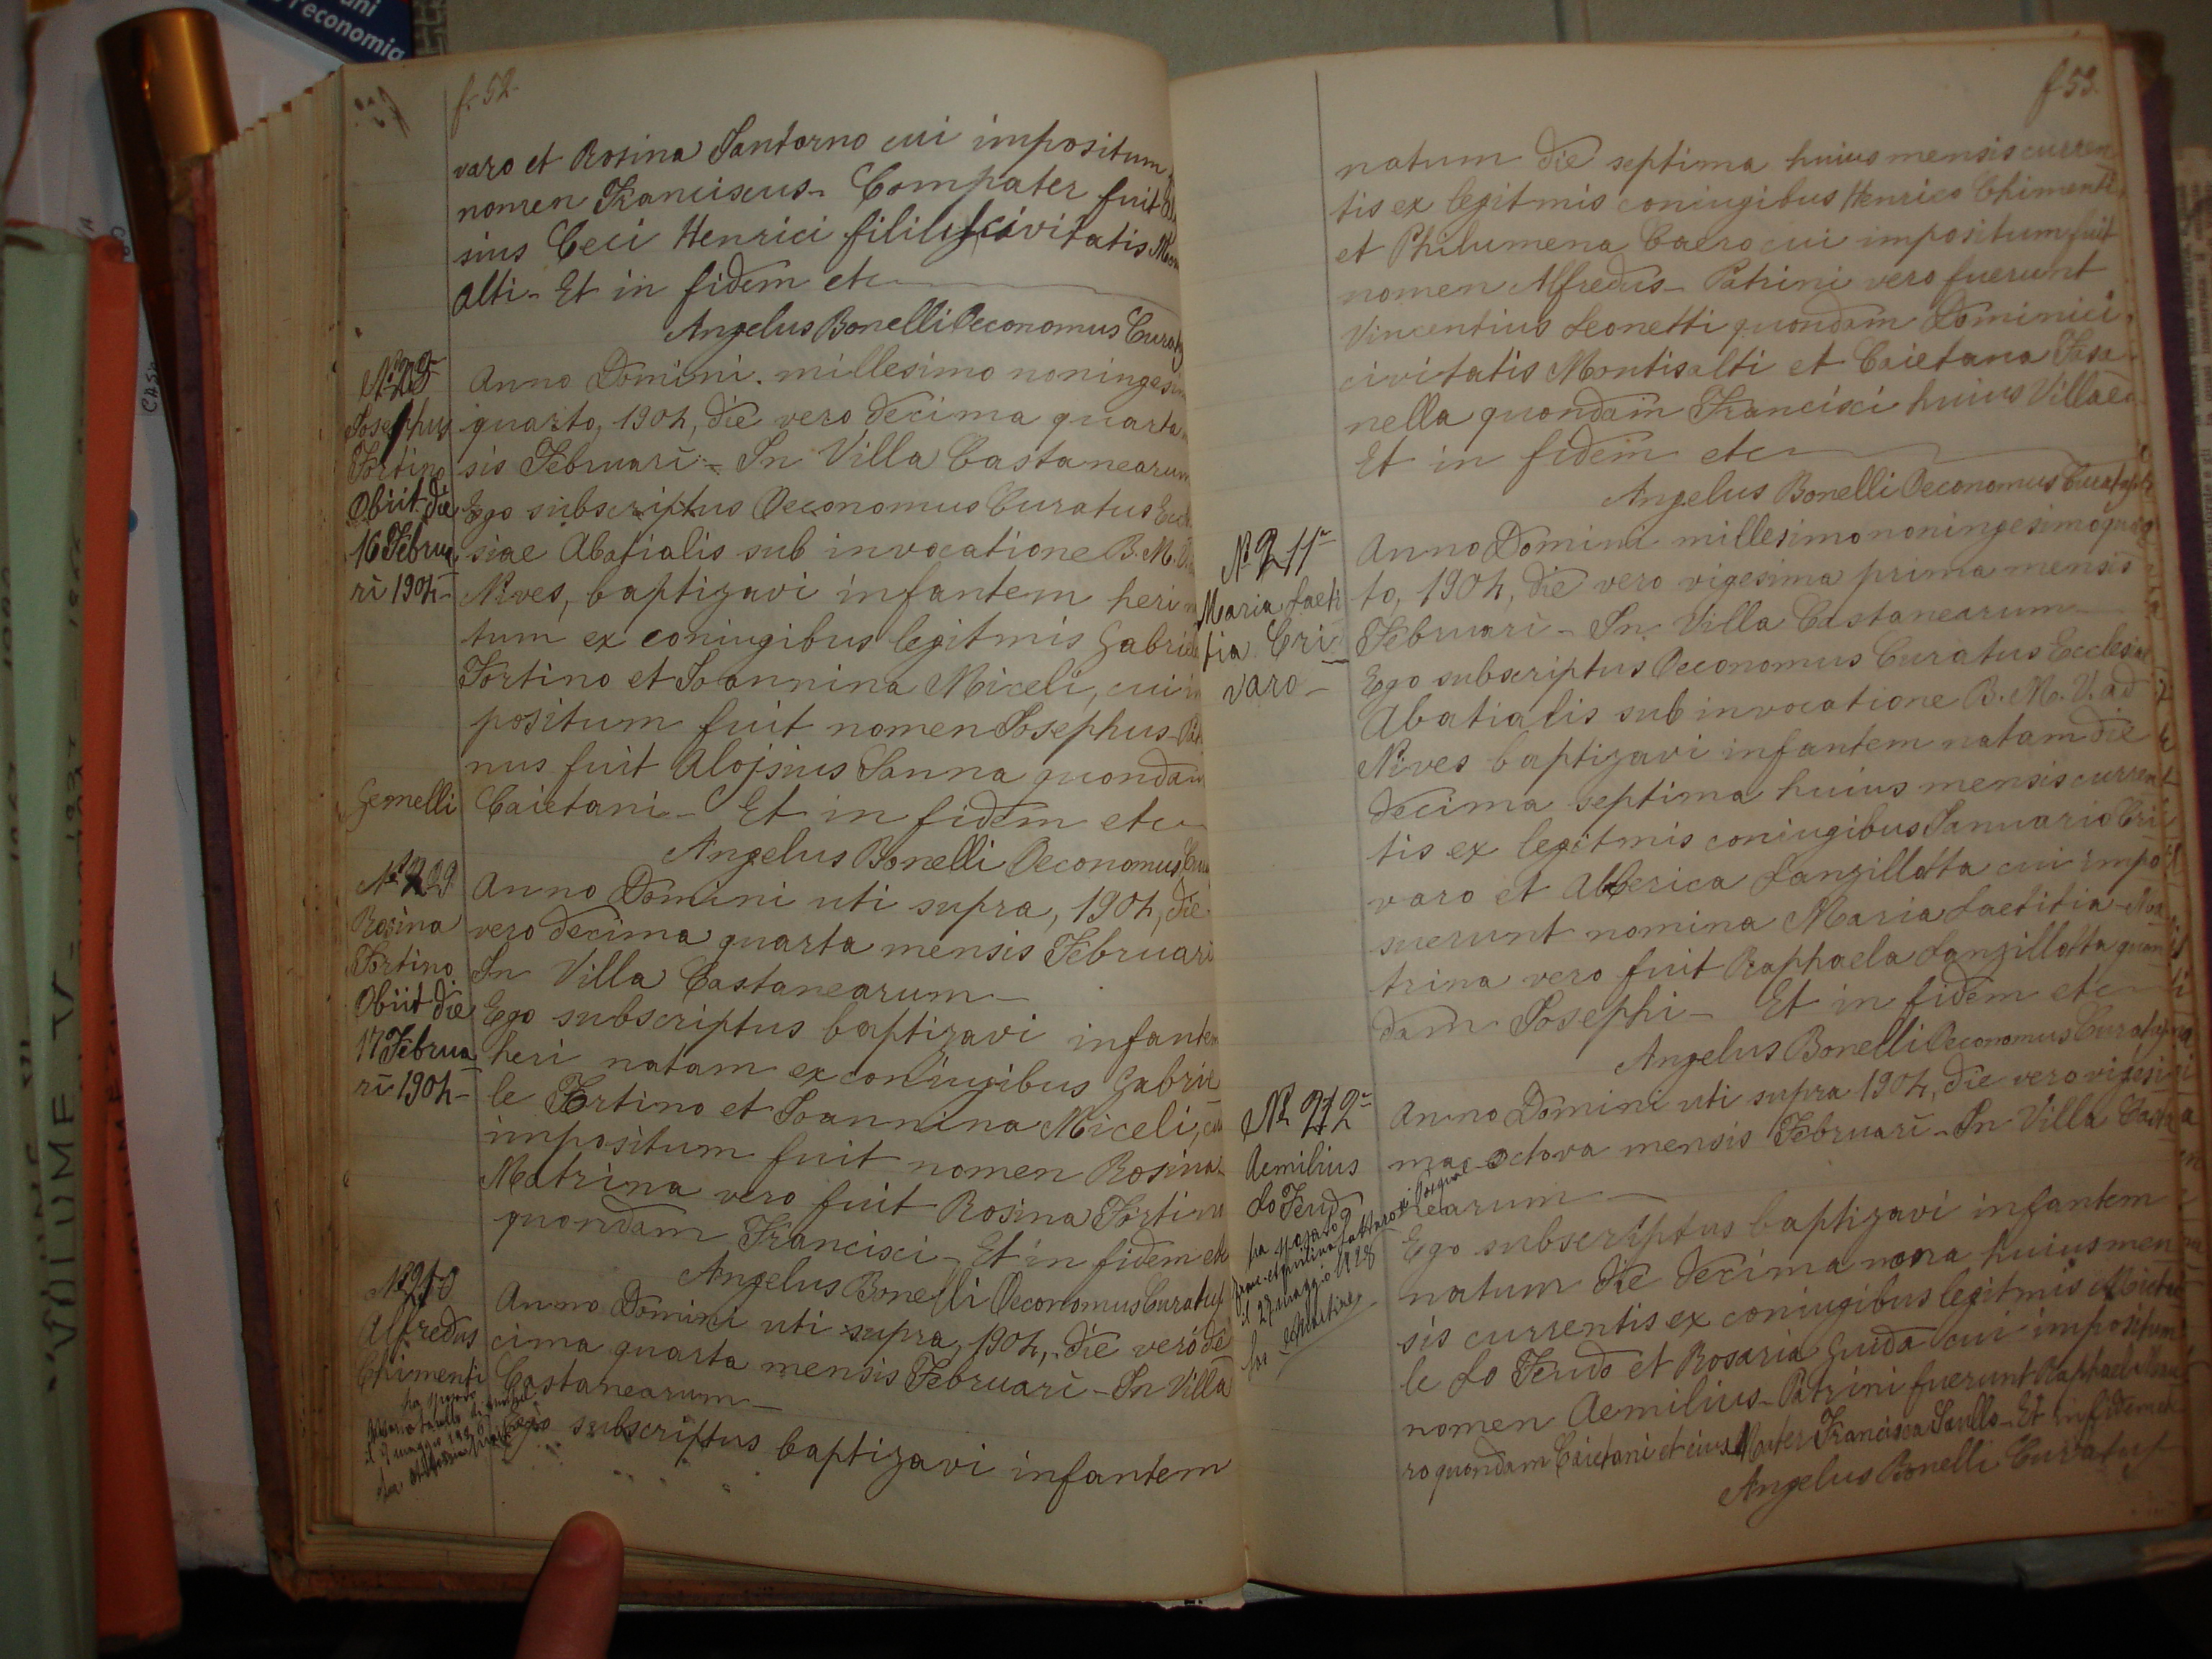 f. 52.
varo et Rosina Santorno cui impositum
nomen Franciscus - Compater fuit
sius Ceci Henrici filius civitatis
alti - Et in fidem etc
Angelus Bonelli Oeconomus
Josephus
Fortino
Obiit die
16 Februa
rī 1904 -
Anno Domini . millesimo noninges
quarto, 1904, die vero decima quarta
sis Februarī - In Villa Castanearum
Ego subscriptus Oeconomus Curatus
siae Abatialis sub invocatione B. M.
Nives, baptizavi infantem heri
tum ex coniugibus legitmis Gabrie
Fortino et Joannina Miceli, cui
positum fuit nomen Josephus -
nus fuit Alojsius Sanna quondam
Caietani - Et in fidem etc
Angelus Bonelli Oeconomus
Gemelli
Rosina
Fortino
Obiit die
17 Februa
rī 1904 -
Anno Domini uti supra, 1904, die
vero decima quarta mensis Februarī
In Villa Castanearum -
Ego subscriptus baptizavi infantem
heri natam ex coniugibus Gabrie
le Fortino et Joannina Miceli,
impositum fuit nomen Rosina -
Matrina vero fuit Rosina Fortino
quondam Francisci - Et in fidem etc
Angelus Bonelli Oeconomus Curatus
Nº 210
Alfredus
Chimenti
ha sposato
Anno Domini uti supra, 1904, die vero de
cima quarta mensis Februarī - In Villa
Castanearum -
Ego subscriptus baptizavi infantem
f 53.
natum die septima huius mensis curren
tis ex legitmis coniugibus Henrico Chimenti
et Philumena Caero cui impositum fuit
nomen Alfredus - Patrini vero fuerunt
Vincentius Leonetti quondam Dominici,
civitatis Montisalti et Caietana Sasa
nella quondam Francisci huius Villae -
Et in fidem etc
Angelus Bonelli Oeconomus Curatus
Nº 211 -
Maria Laeti
tia Cri
varo -
Anno Domini millesimo noningesimo quar
to, 1904, die vero vigesima prima mensis
Februarī - In Villa Castanearum
Ego subscriptus Oeconomus Curatus Ecclesiae
Abatialis sub invocatione B. M. V. ad
Nives baptizavi infantem natam die
decima septima huius mensis curren
tis ex legitmis coniugibus Januario Cri
varo et Alberica Lanzillotta cui impo
suerunt nomina Maria Laetitia - Ma
trina vero fuit Raphaela Lanzillotta quon
dam Josephi - Et in fidem etc
Angelus Bonelli Oeconomus Curatus
Nº 212 -
Aemilius
Lo Feudo
ha sposato
il 27 maggio 1928
Anno Domini uti supra 1904, die vero vigesi
ma octava mensis Februarī - In Villa Casta
nearum -
Ego subscriptus baptizavi infantem
natum die decima nona huius men
sis currentis ex coniugibus legitmis Michae
le Lo Feudo et Rosaria Guida cui impositum
nomen Aemilius - Patrini fuerunt Raphael
ro quondam Caietani et eius Mater Francisca Saullo - Et in fidem etc
Angelus Bonelli Curatus
VOLUME IV
l'economia